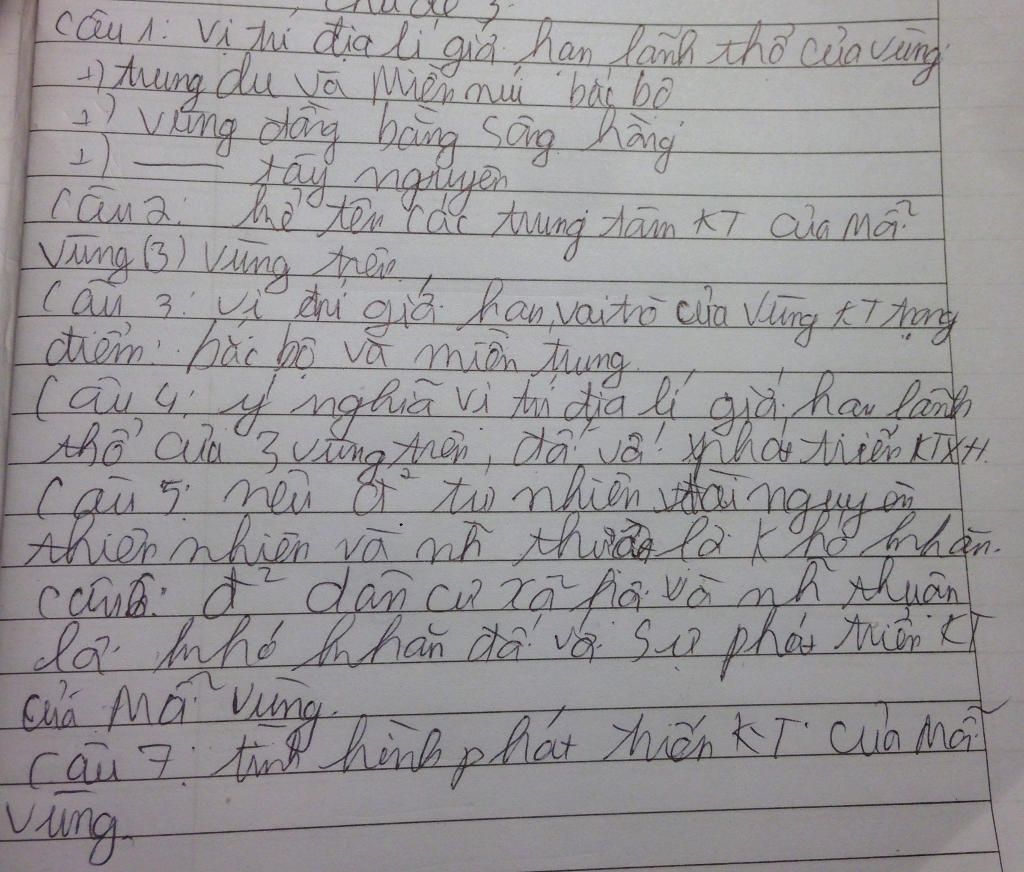 chủ đề 3.
câu 1: vị trí địa lí giới hạn lãnh thổ của vùng
+) trung du và miền núi bắc bộ
+) vùng đồng bằng sông hồng
+) —— tây nguyên
Câu 2: kể tên các trung tâm KT của mỗi
vùng (3) vùng trên.
Câu 3: vị trí giới hạn, vai trò của vùng KT trọng
điểm: bắc bộ và miền trung.
Câu 4: ý nghĩa vị trí địa lí giới hạn lãnh
thổ của 3 vùng trên, đối với phát triển KTXH.
Câu 5: nêu đ² tự nhiên, tài nguyên
thiên nhiên và nh~ thuận lợi khó khăn.
Câu 6: đ² dân cư xã hội và nh~ thuận
lợi khó khăn đối với sự phát triển KT
của mỗi vùng.
Câu 7: tình hình phát triển KT của mỗi
vùng.